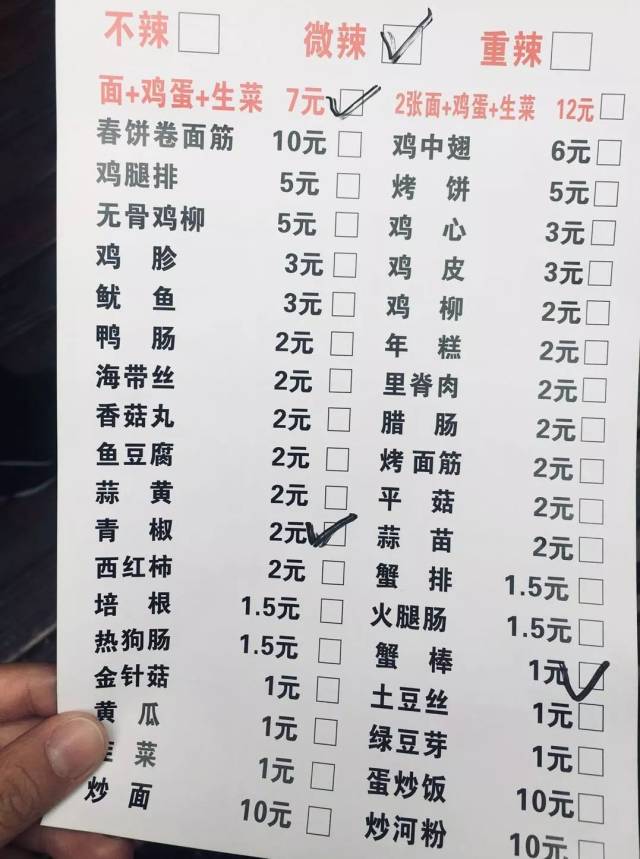 不辣 微辣 重辣
面+鸡蛋+生菜 7元 2张面+鸡蛋+生菜 12元
春饼卷面筋 10元 鸡中翅 6元
鸡腿排 5元 烤饼 5元
无骨鸡柳 5元 鸡心 3元
鸡胗 3元 鸡皮 3元
鱿鱼 3元 鸡柳 2元
鸭肠 2元 年糕 2元
海带丝 2元 里脊肉 2元
香菇丸 2元 腊肠 2元
鱼豆腐 2元 烤面筋 2元
蒜黄 2元 平菇 2元
青椒 2元 蒜苗 2元
西红柿 2元 蟹排 1.5元
培根 1.5元 火腿肠 1.5元
热狗肠 1.5元 蟹棒 1元
金针菇 1元 土豆丝 1元
黄瓜 1元 绿豆芽 1元
菜 1元 蛋炒饭 10元
炒面 10元 炒河粉 10元